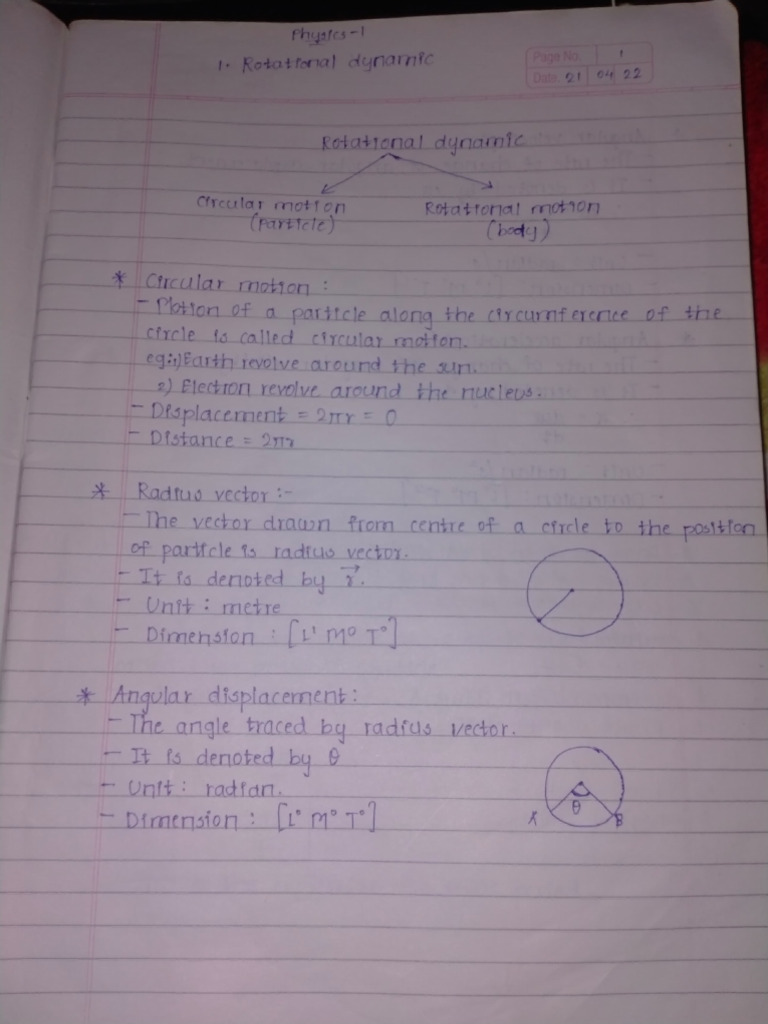 Physics-1
1. Rotational dynamic
Page No. 1
Date 21 04 22
Rotational dynamic
Circular motion Rotational motion
(particle) (body)
* Circular motion :
- Motion of a particle along the circumference of the
circle is called circular motion.
eg:1) Earth revolve around the sun.
2) Electron revolve around the nucleus.
- Displacement = 2πr = 0
- Distance = 2πr
* Radius vector :-
- The vector drawn from centre of a circle to the position
of particle is radius vector.
- It is denoted by r⃗.
- Unit : metre
- Dimension : [L¹ M⁰ T⁰]
* Angular displacement :
- The angle traced by radius vector.
- It is denoted by θ
- Unit : radian.
- Dimension : [L⁰ M⁰ T⁰]
θ
A B